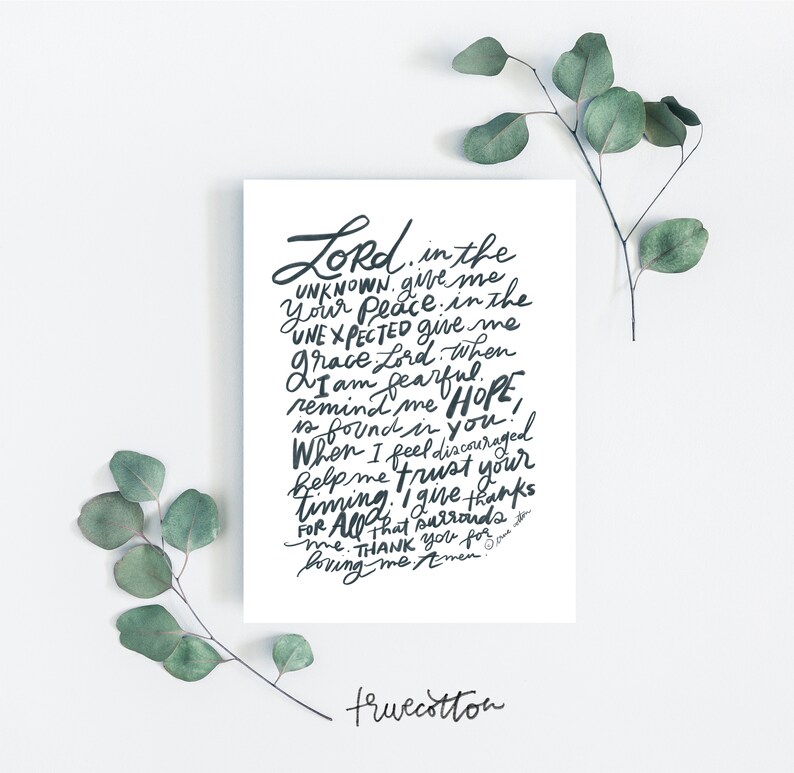 Lord, in the
UNKNOWN, give me
your Peace. in the
UNEXPECTED give me
grace. Lord, When
I am fearful,
remind me HOPE
is found in you!
When I feel discouraged
help me trust your
timing. I give thanks
FOR All that surrouds
me. THANK you for
loving me. Amen.
© true cotton
truecotton